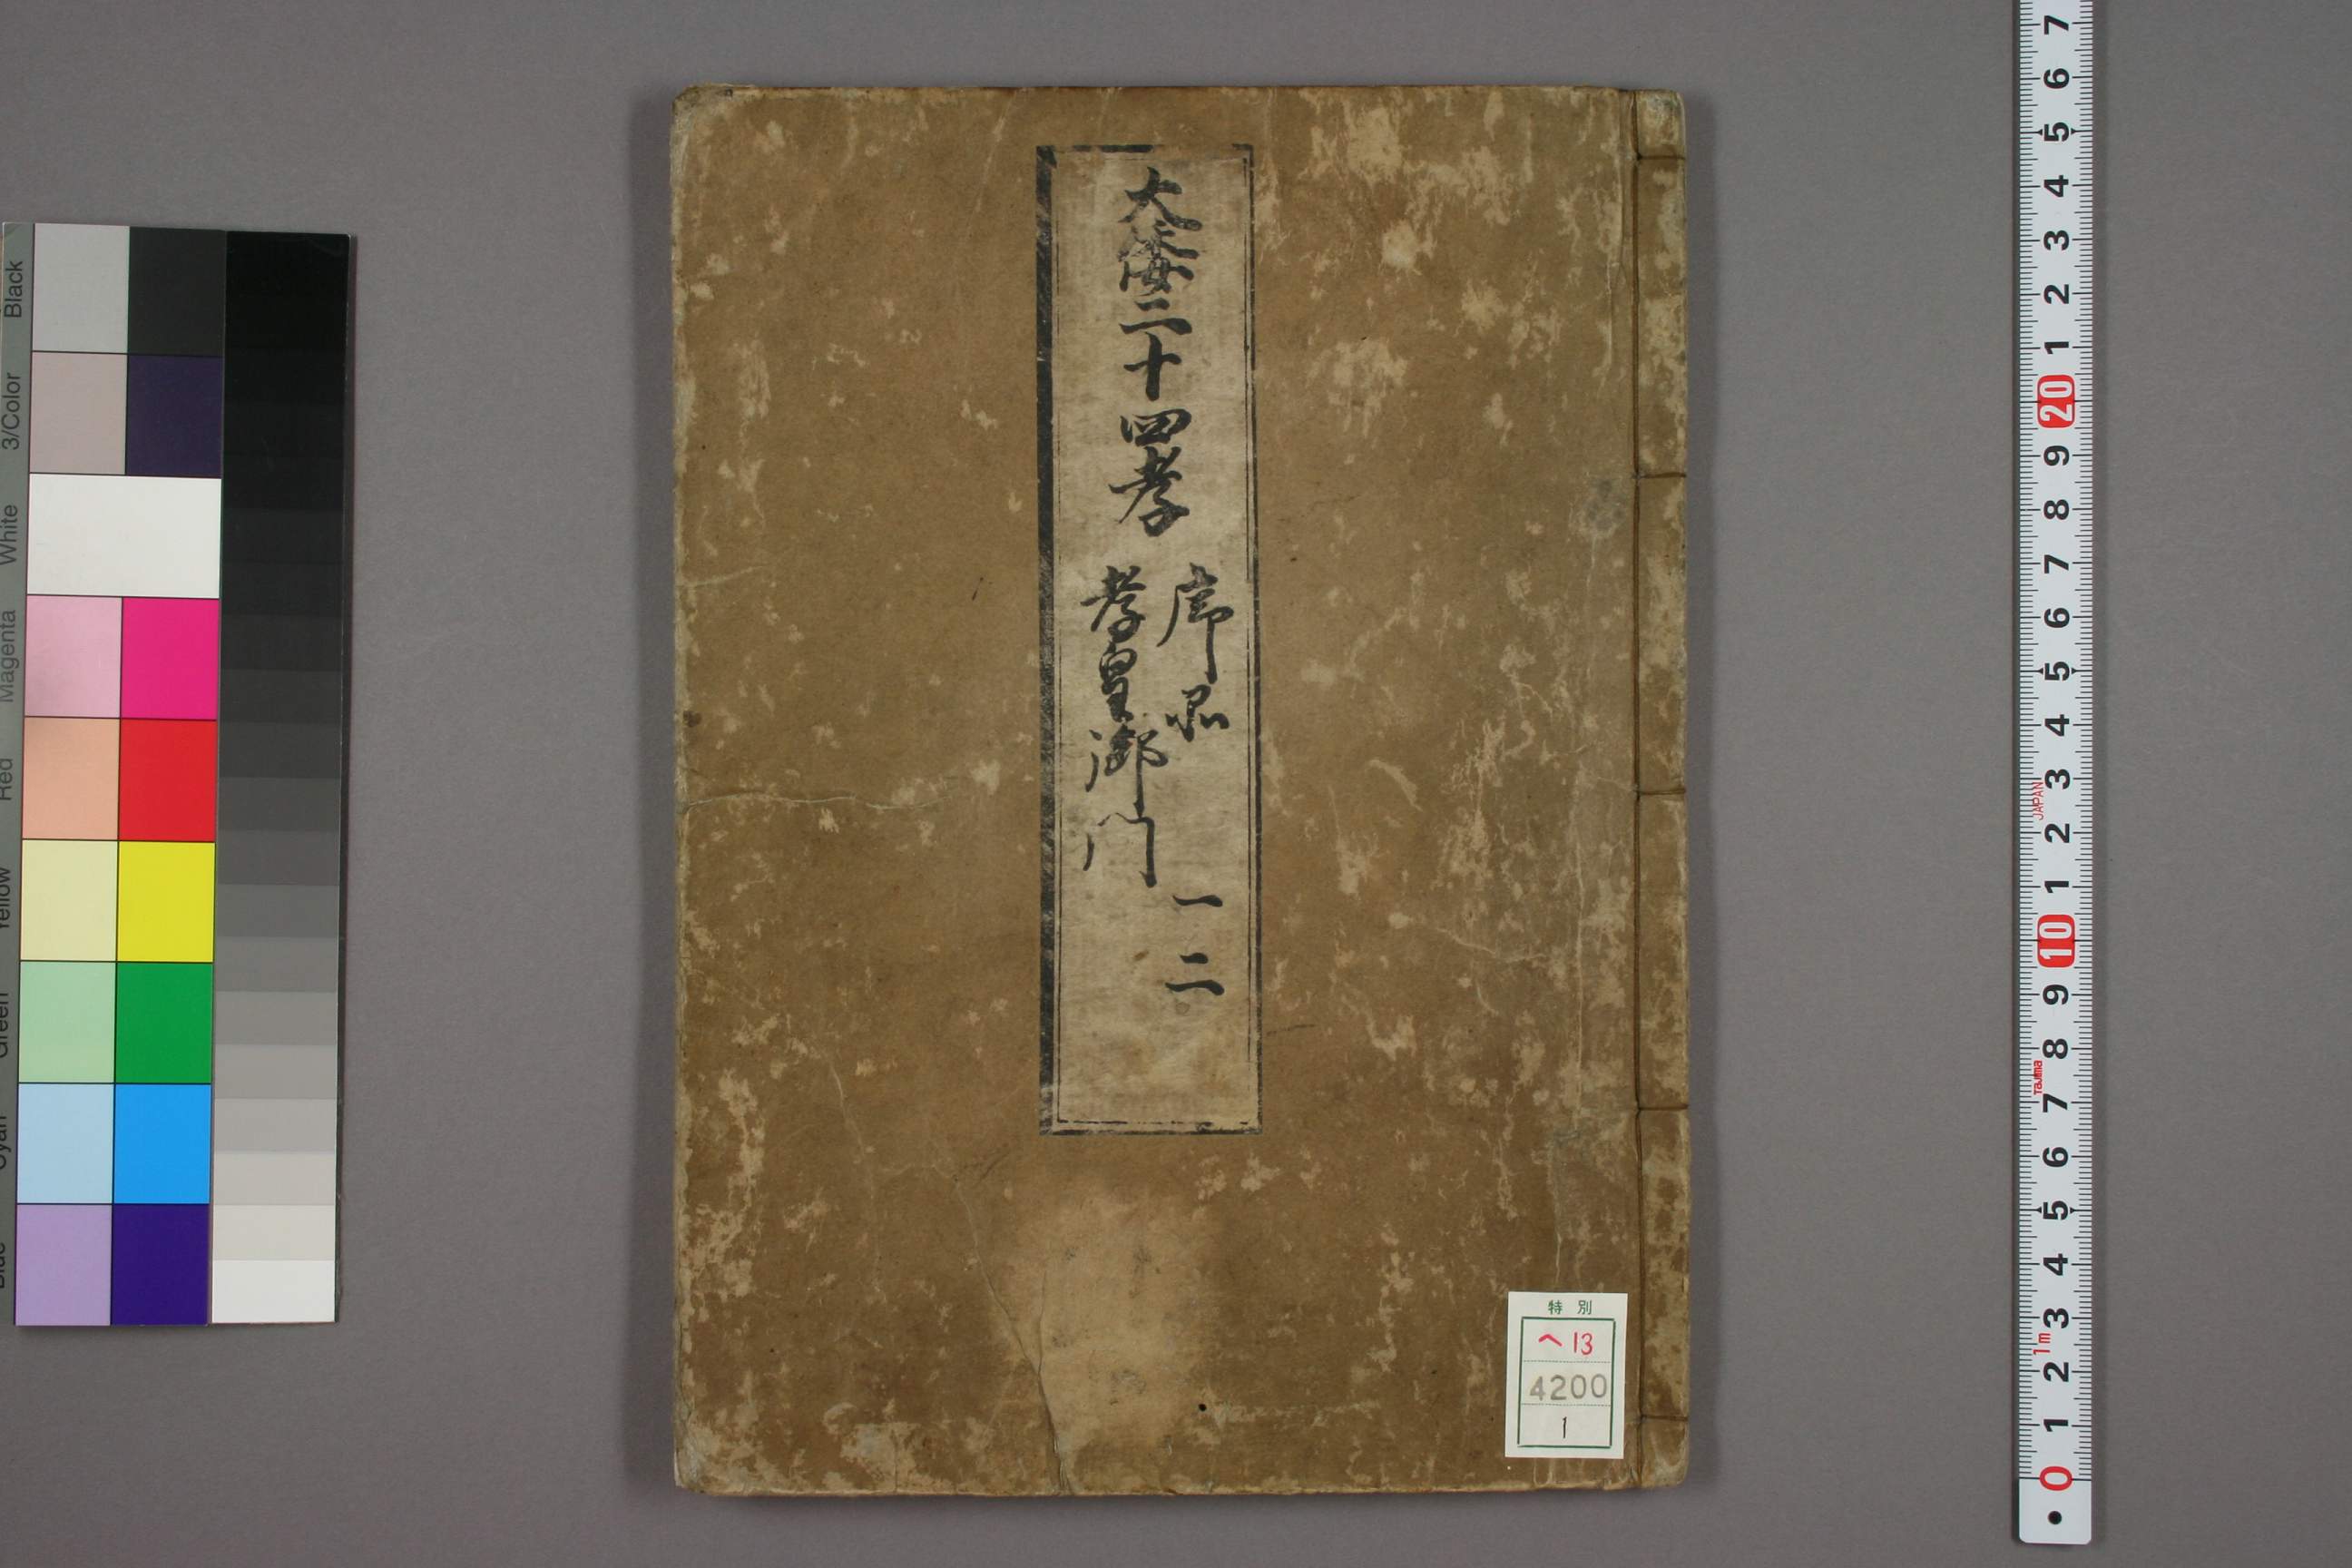 大倭二十四孝
序品
孝皇御門
一
二
特別
へ13
4200
1
Black
3/Color
White
Magenta
Red
Yellow
Green
Cyan
Blue
7
6
5
4
3
2
1
20
9
8
7
6
5
4
3
JAPAN
2
1
10
9
8
Tajima
7
6
5
4
3
1m
2
1
0